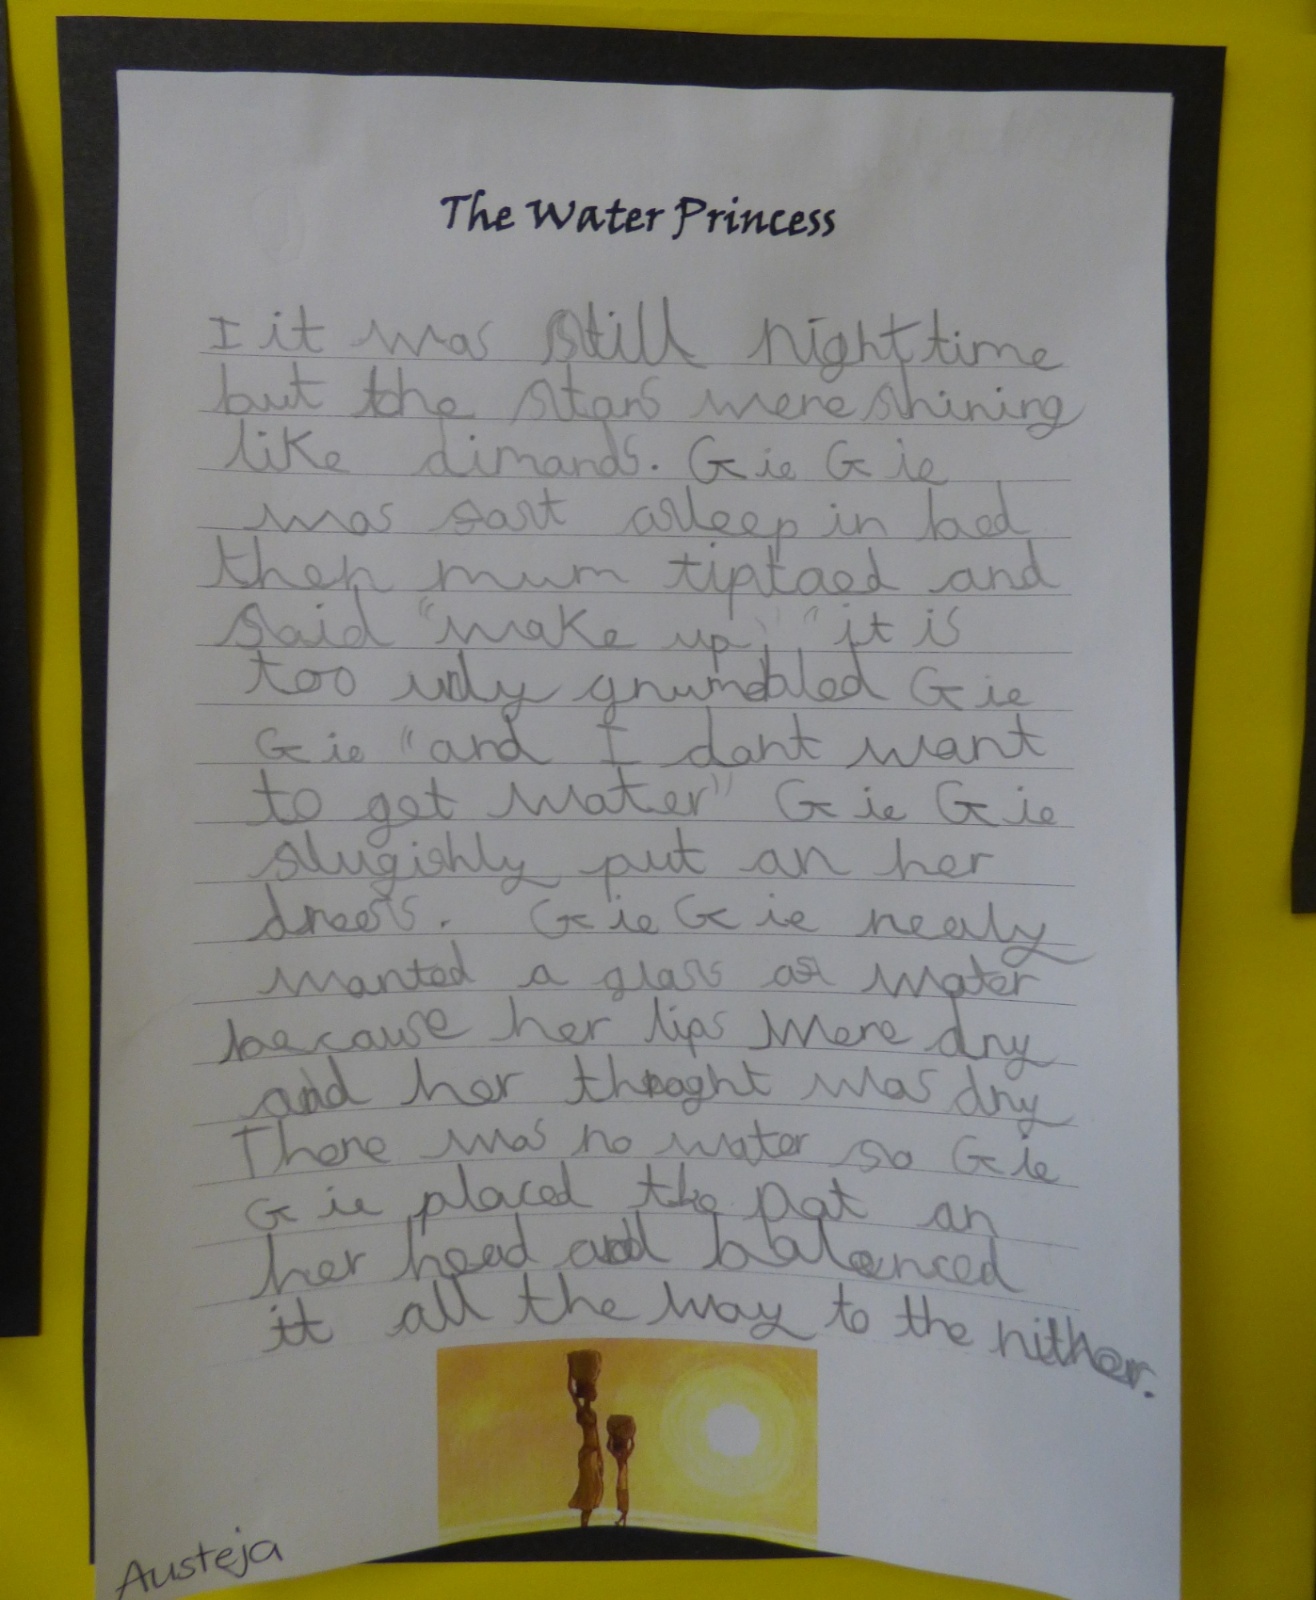 The Water Princess
I it was still night time
but the stars were shining
like dimands. Gie Gie
was fast asleep in bed
then mum tiptaed and
said "wake up," "it is
too uly grumbled Gie
Gie "and I dont want
to get water" Gie Gie
slugishly put on her
dress. Gie Gie realy
wanted a glass of water
because her lips were dry
and her throght was dry
There was no water so Gie
Gie placed the pot on
her head and balanced
it all the way to the rither.
Austeja